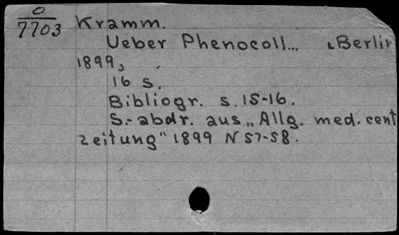 0
7703
Kramm.
Ueber Phenocoll... Berlin
1899,
16 s.
Bibliogr. s. 15-16.
S.-abdr. aus „Allg. med. cent
zeitung" 1899 N 57-58.